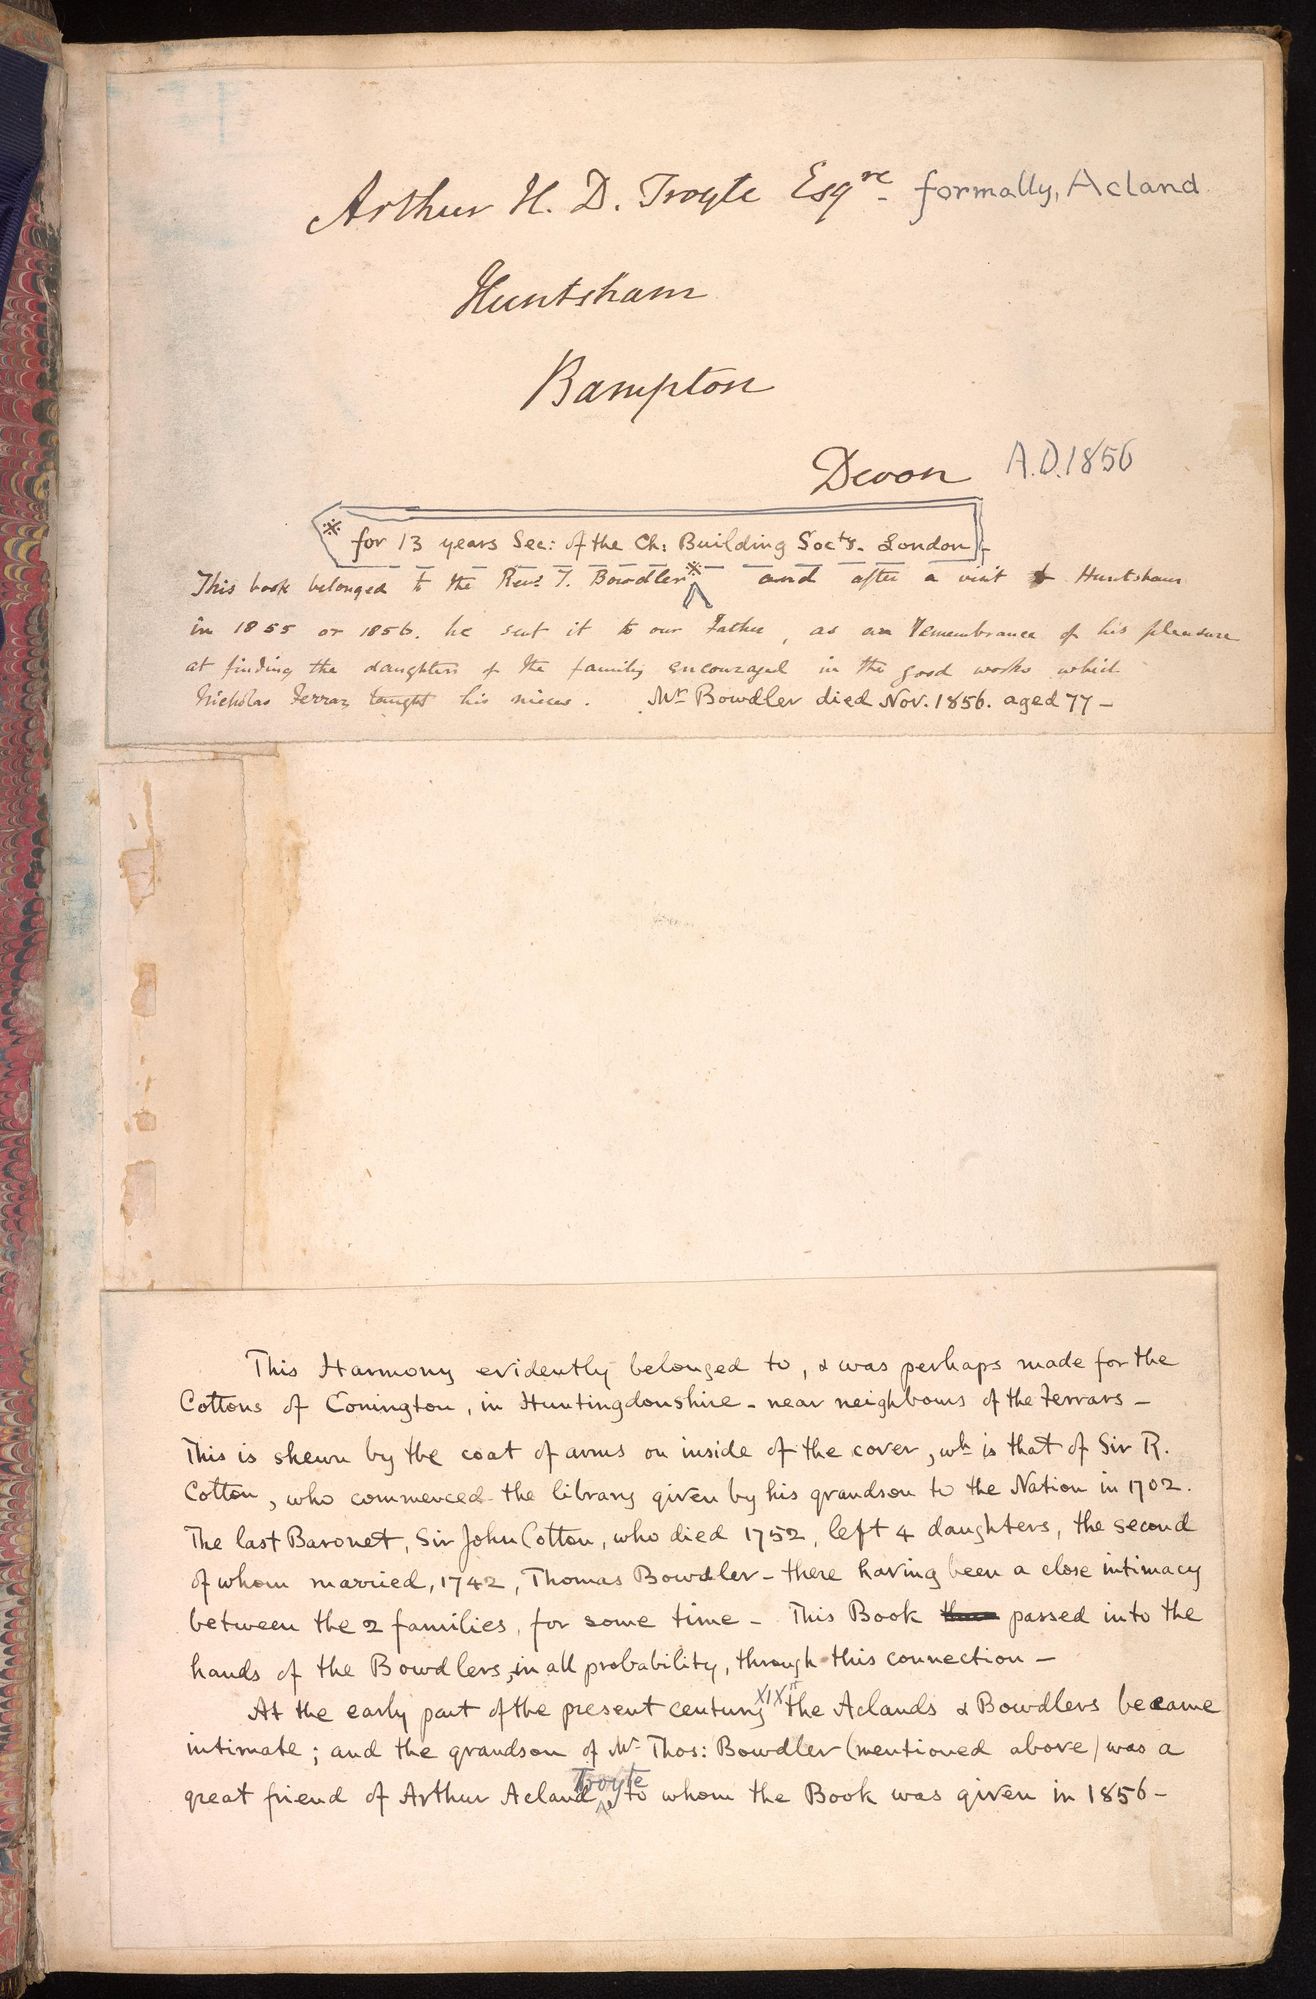 Arthur H. D. Troyte Esqre. formally, Acland
Huntsham
Bampton
Devon A.D. 1856
※ for 13 years Sec: of the Ch: Building Socty. London
This book belonged to the Revd. T. Bowdler※ and after a visit to Huntsham
in 1855 or 1856. he sent it to our Father, as an remembrance of his pleasure
at finding the daughters of the family encouraged in the good works which
Nicholas Ferrar taught his nieces. Mr Bowdler died Nov. 1856. aged 77 –
This Harmony evidently belonged to, & was perhaps made for the
Cottons of Conington, in Huntingdonshire – near neighbours of the Ferrars –
This is shewn by the coat of arms on inside of the cover, wh is that of Sir R.
Cotton, who commenced the library given by his grandson to the Nation in 1702.
The last Baronet, Sir John Cotton, who died 1752, left 4 daughters, the second
of whom married, 1742, Thomas Bowdler – there having been a close intimacy
between the 2 families, for some time – This Book passed into the
hands of the Bowdlers, in all probability, through this connection –
At the early part of the present century XIXth the Aclands & Bowdlers became
intimate; and the grandson of Mr Thos: Bowdler (mentioned above) was a
great friend of Arthur Acland Troyte, to whom the Book was given in 1856 –